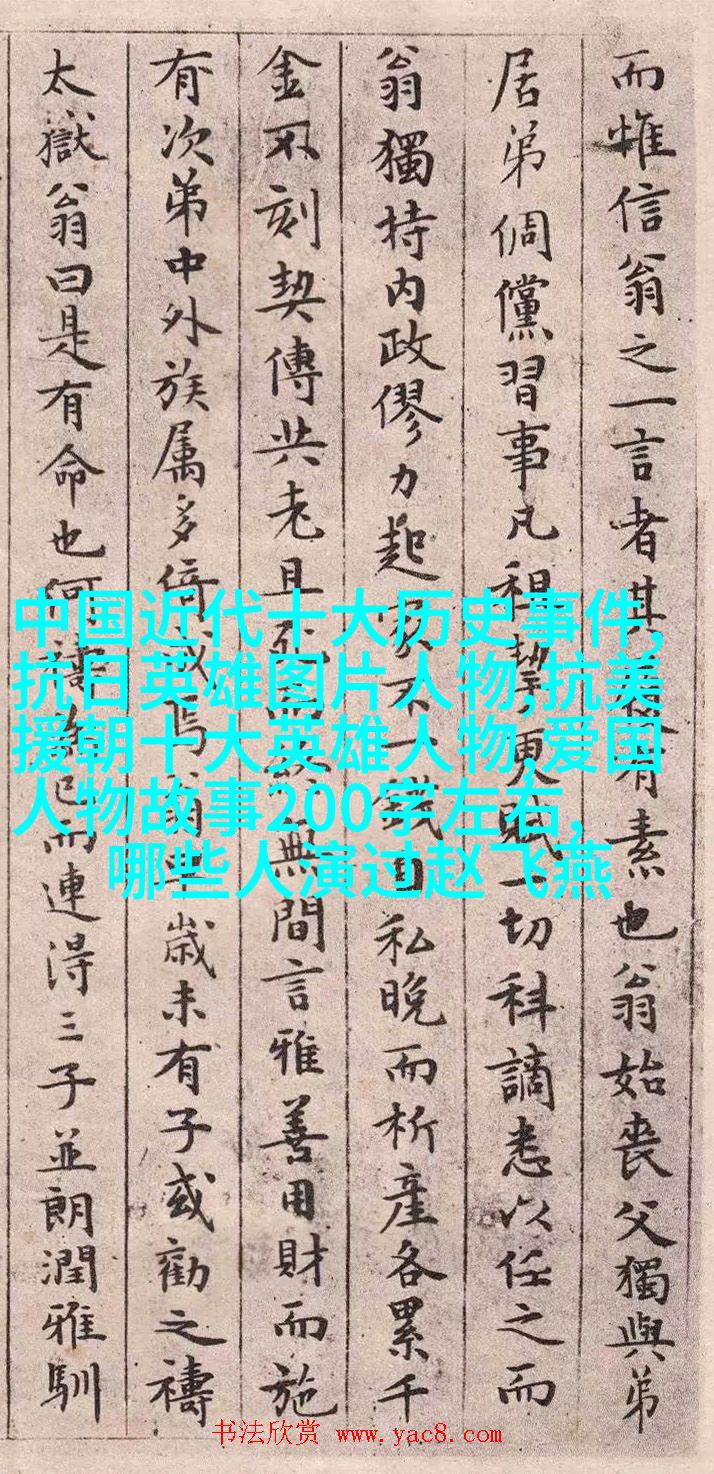 而惟信翁之一言者其
有素也翁始丧父獨與弟
居弟倜儻習事凡租
更賦一切科謫悉以任之而
翁獨持内政僇力起
不一錢自私晚而析產各累千
金不刻契傳共老且死
無間言雅善用財而施
有次弟中外族属多倚
歲未有子或勸之禱
太嶽翁曰是有命也何
而連得三子並朗潤雅馴
中国近代十大历史事件,
抗日英雄图片人物,抗美
援朝十大英雄人物,爱国
人物故事200字左右,
哪些人演过赵飞燕
书法欣赏 www.yac8.com